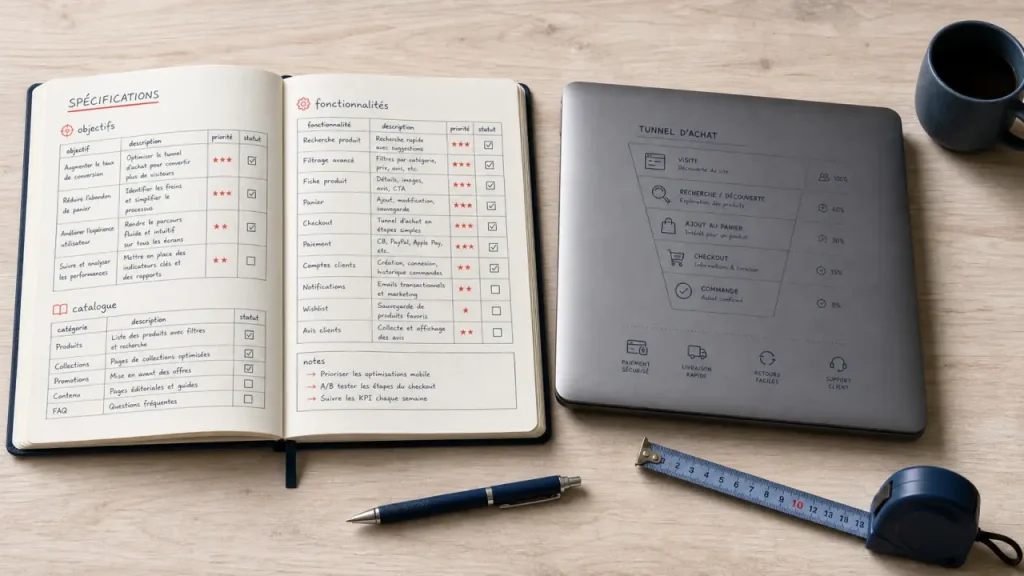 SPÉCIFICATIONS
objectifs
objectif description priorité statut
Augmenter le taux de conversion Optimiser le tunnel d'achat pour convertir plus de visiteurs ★★★ ☑
Réduire l'abandon de panier Identifier les freins et simplifier le processus ★★★ ☑
Améliorer l'expérience utilisateur Rendre le parcours fluide et intuitif sur tous les écrans ★★ ☑
Suivre et analyser les performances Mettre en place des indicateurs clés et des rapports ★★ ☐
catalogue
catégorie description statut
Produits Liste des produits avec filtres et recherche ☑
Collections Pages de collections optimisées ☑
Promotions Mise en avant des offres ☑
Contenu Pages éditoriales et guides ☐
FAQ Questions fréquentes ☐
fonctionnalités
fonctionnalité description priorité statut
Recherche produit Recherche rapide avec suggestions ★★★ ☑
Filtrage avancé Filtres par catégorie, prix, avis, etc. ★★★ ☑
Fiche produit Détails, images, avis, CTA ★★★ ☑
Panier Ajout, modification, sauvegarde ★★★ ☑
Checkout Tunnel d'achat en étapes simples ★★★ ☑
Paiement CB, PayPal, Apple Pay, etc. ★★★ ☑
Comptes clients Création, connexion, historique commandes ★★ ☑
Notifications Emails transactionnels et marketing ★★ ☐
Wishlist Sauvegarde de produits favoris ★ ☐
Avis clients Collecte et affichage des avis ★★ ☐
notes
→ Prioriser les optimisations mobile
→ A/B tester les étapes du checkout
→ Suivre les KPI chaque semaine
TUNNEL D'ACHAT
VISITE
Découverte du site
100%
RECHERCHE / DÉCOUVERTE
Exploration des produits
60%
AJOUT AU PANIER
30%
CHECKOUT
Informations & livraison
15%
COMMANDE
Achat confirmé
8%
PAIEMENT SÉCURISÉ
LIVRAISON RAPIDE
RETOURS FACILES
SUPPORT CLIENT
2 3 4 5 6 7 8 9 10 12 13 18 13